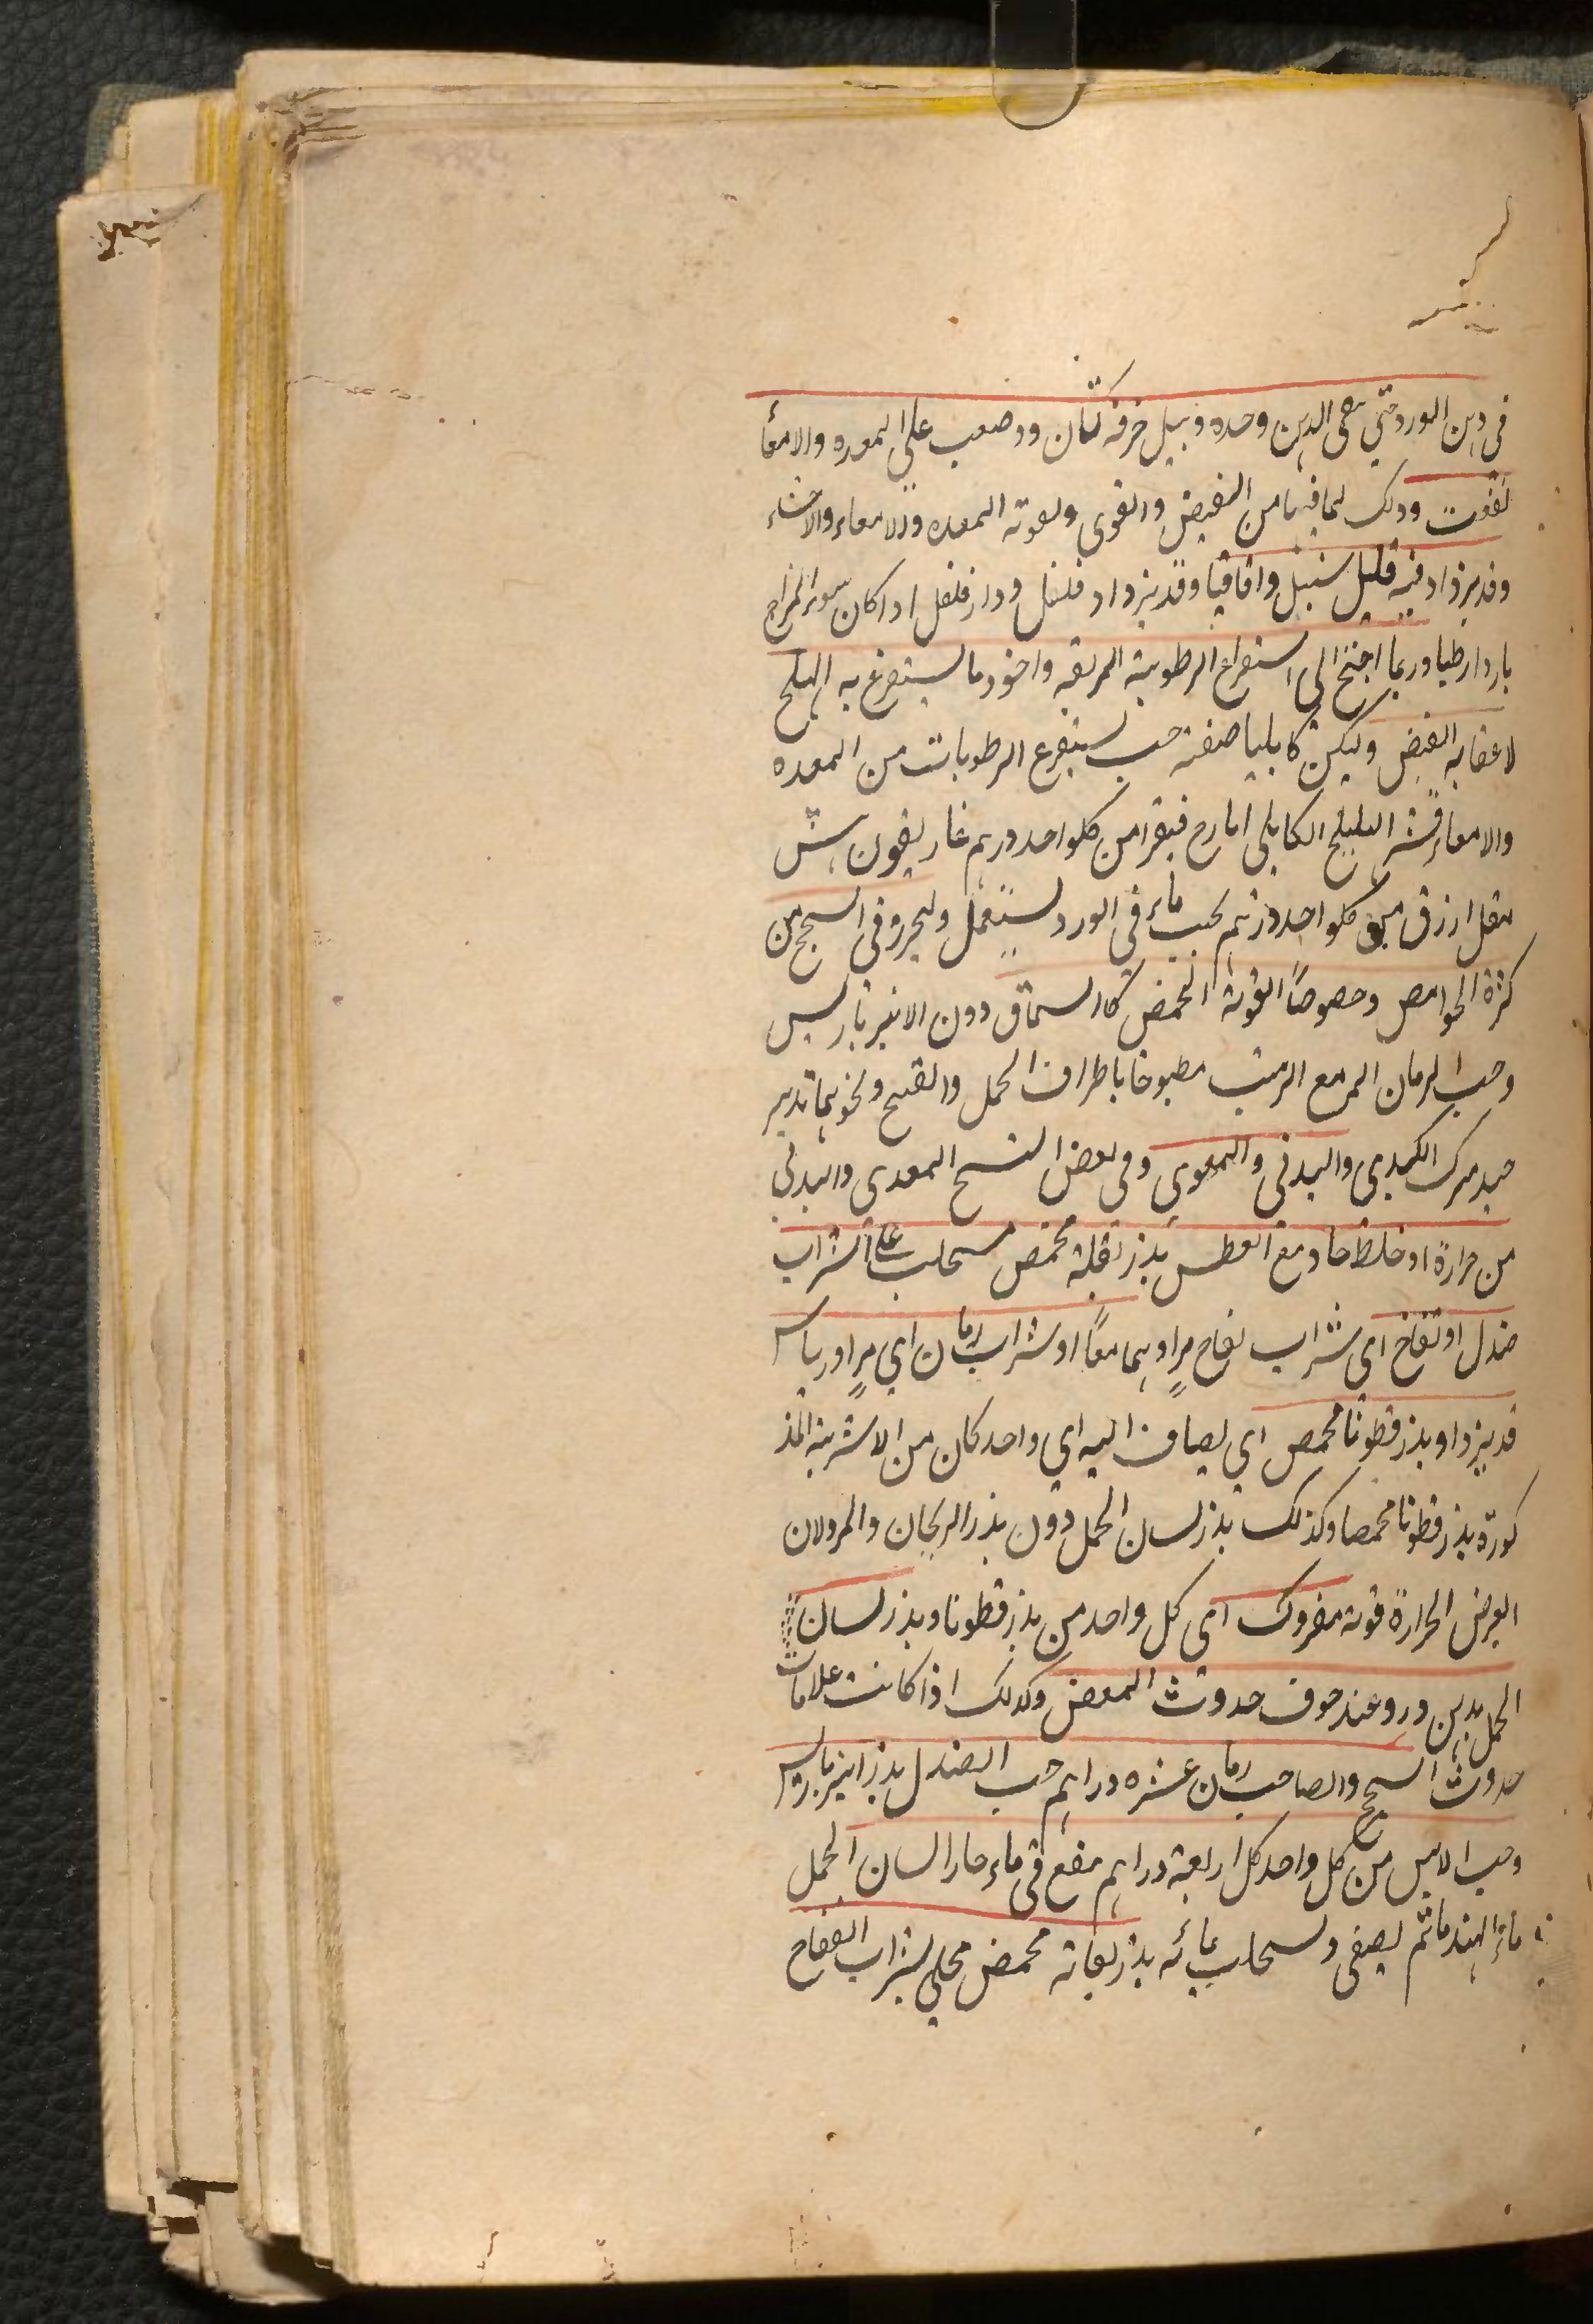 في دهن الورد حتى يبقى الدهن وحده ويبل خرقة كتان ووضعت على المعدة والامعأ
نفعت وذلك لما فيها من القبض والقوى ولقوته المعده والامعاء والاحشاء
وقد يزاد فيه قليل سنبل واقاقيا وقد يزداد فلفل ودار فلفل اذا كان سوء المزاج
باردا رطبا وربما احتيج الى استفراغ الرطوبة المزلقه واجود ما يستفرغ به الهليلج
لاعقابه القبض وليكن كابليا صفته حب يستفرغ الرطوبات من المعده
والامعاء قشر الهليلج الكابلي ايارج فيقرا من كلواحد درهم غاريقون
مقل ازرق من كلواحد درهم يحب في ماء الورد يستعمل وليحرز في السحج من
كثرة الحوامض وخصوصًا القوية الحمض كالسماق دون الانبرباريس
وحب الرمان المر مع الزيت مطبوخا باطراف الحمل والقبج ونحوهما تدبير
الكبدي والبدني والمعوي وفي بعض النسخ المعدى والبدني
من حرارة او خلط حاد مع العطس بذر بقلة محمص مستحلب على شراب
صندل او تفاح اي شراب تفاح مرٍ او بهما معًا او شراب رمان اي مرٍ او ريباس
قد يزداو بذر قطونا محمص اي يضاف اليه اي واحد كان من الاشربة المذ
كورة بذر قطونا محمصا وكذلك بذر لسان الحمل دون بذر الريحان والمرو لان
الغرض الحرارة قوية مفروك اى كل واحد من بذر قطونا وبذر لسان
الحمل بدهن ورد وعند خوف حدوث المغص وكذلك اذا كانت علامات
حدوث السحج والصاحب رمان عشره دراهم حب الصندل بذر انبرباريس
وحب الاس من كل واحد كل اربعة دراهم منقع في ماء حار لسان الحمل
ماء الهندبا ثم يصفى ويستحلب بمائه بذر بقلة محمض محلى بشراب التفاح